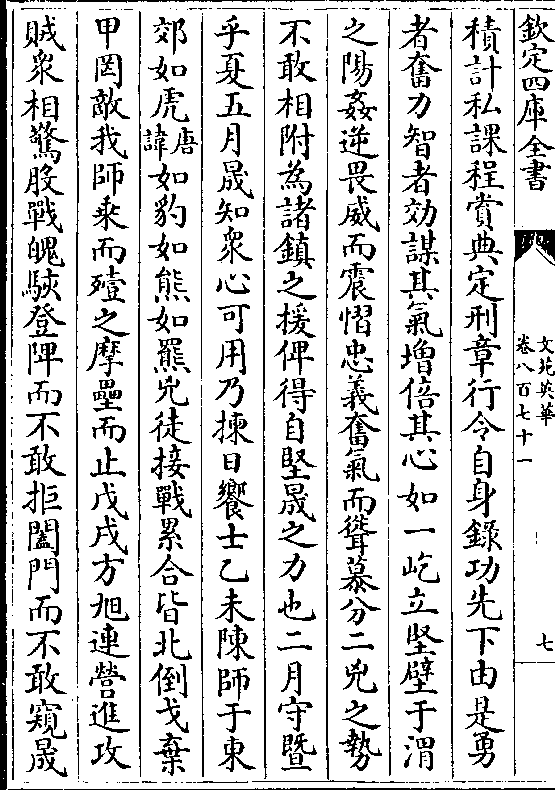 欽定四庫全書
文苑英華
卷八百七十一
七
積計私課程賞典定刑章行令自身錄功先下由是勇
者奮力智者効謀其氣增倍其心如一屹立堅壁于渭
之陽姦逆畏威而震慴忠義奮氣而聳慕分二兇之勢
不敢相附為諸鎮之援俾得自堅晟之力也二月守暨
乎夏五月晟知衆心可用乃揀日饗士乙未陳師于東
郊如虎唐諱如豹如熊如羆兇徒接戰累合皆北倒戈棄
甲罔敵我師乘而殪之摩壘而止戊戌方旭連營進攻
賊衆相驚股戰魄駴登陴而不敢拒闔門而不敢窺晟